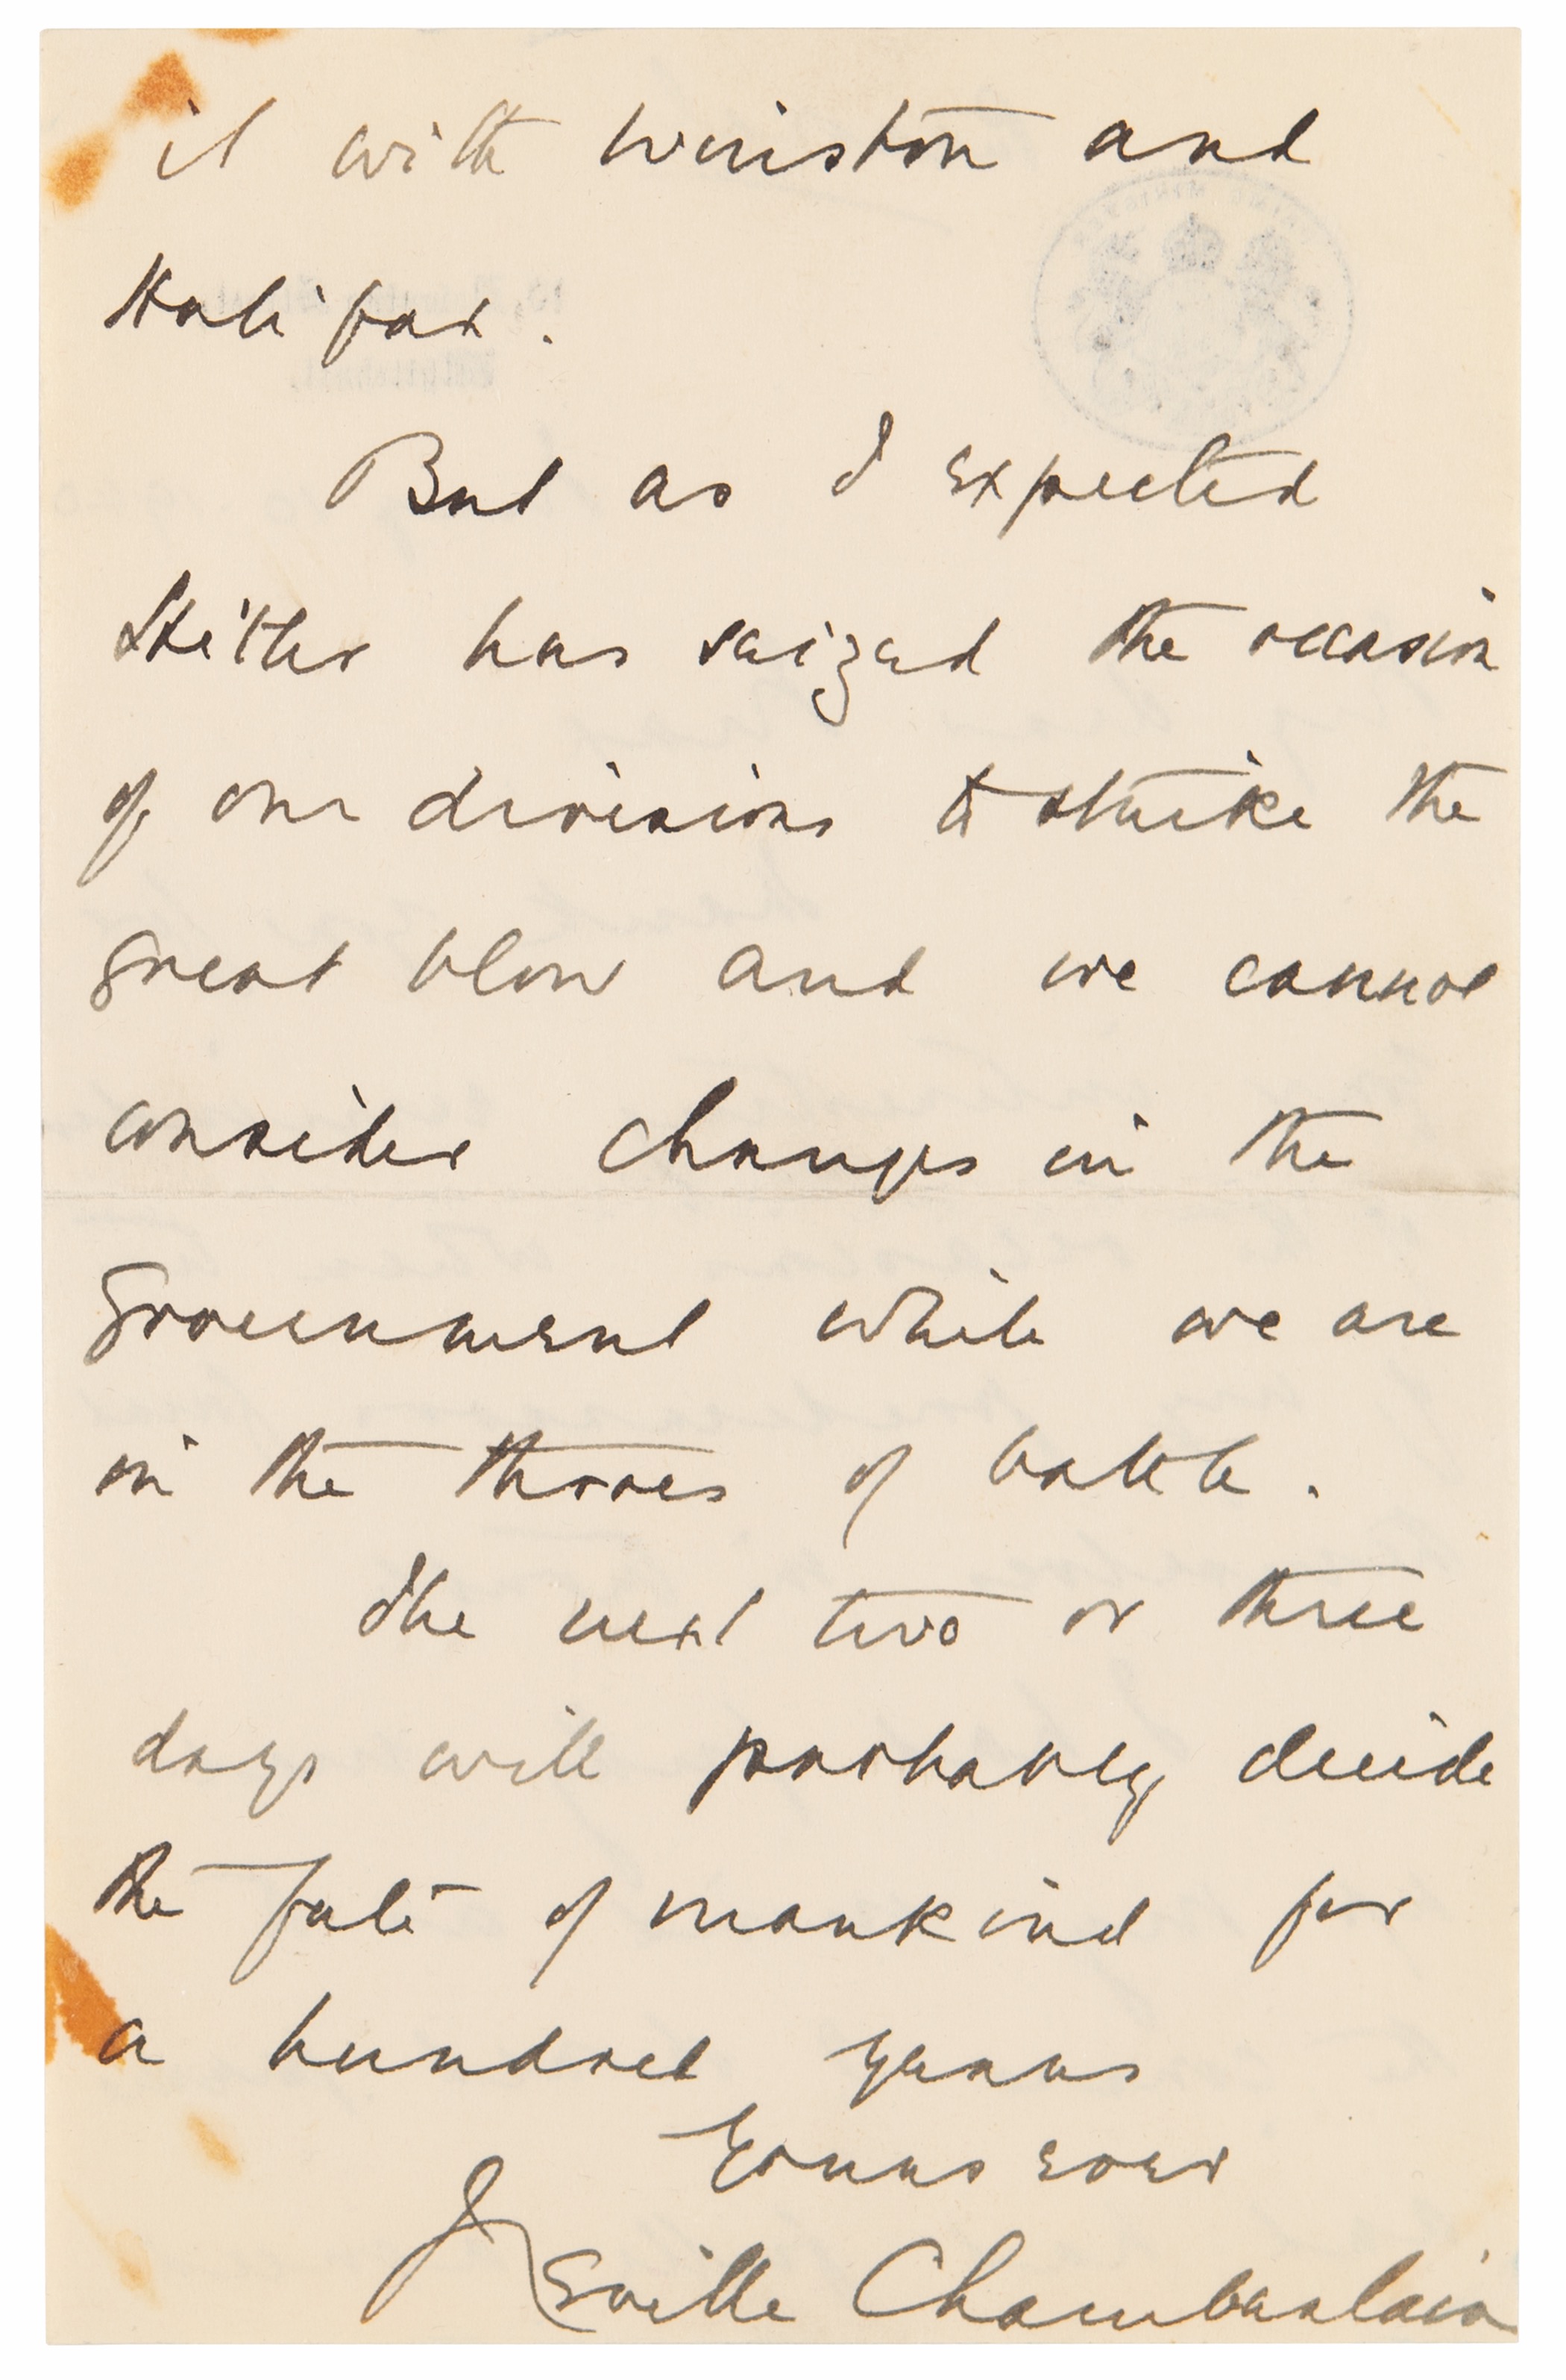 it with Winston and
Halifax.
But as I expected
Hitler has seized the occasion
of our divisions to strike the
great blow and we cannot
consider changes in the
Government while we are
in the throes of battle.
The next two or three
days will probably decide
the fate of mankind for
a hundred years
Yours ever
Neville Chamberlain